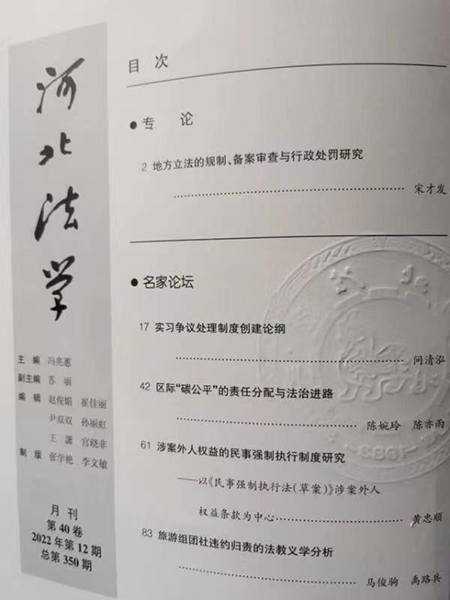 河北法学
主 编 冯兆蕙
副主编 苏 丽
编 辑 赵俊娟 崔佳丽
尹双双 孙丽虹
王 潇 宫晓菲
制 版 张学艳 李文敏
月 刊
第 40 卷
2022 年第 12 期
总第 350 期
目 次
● 专 论
2 地方立法的规制、备案审查与行政处罚研究
宋才发
● 名家论坛
17 实习争议处理制度创建论纲
问清泓
42 区际“碳公平”的责任分配与法治进路
陈婉玲 陈亦雨
61 涉案外人权益的民事强制执行制度研究
——以《民事强制执行法(草案)》涉案外人
权益条款为中心
黄忠顺
83 旅游组团社违约归责的法教义学分析
马俊驹 禹路兵